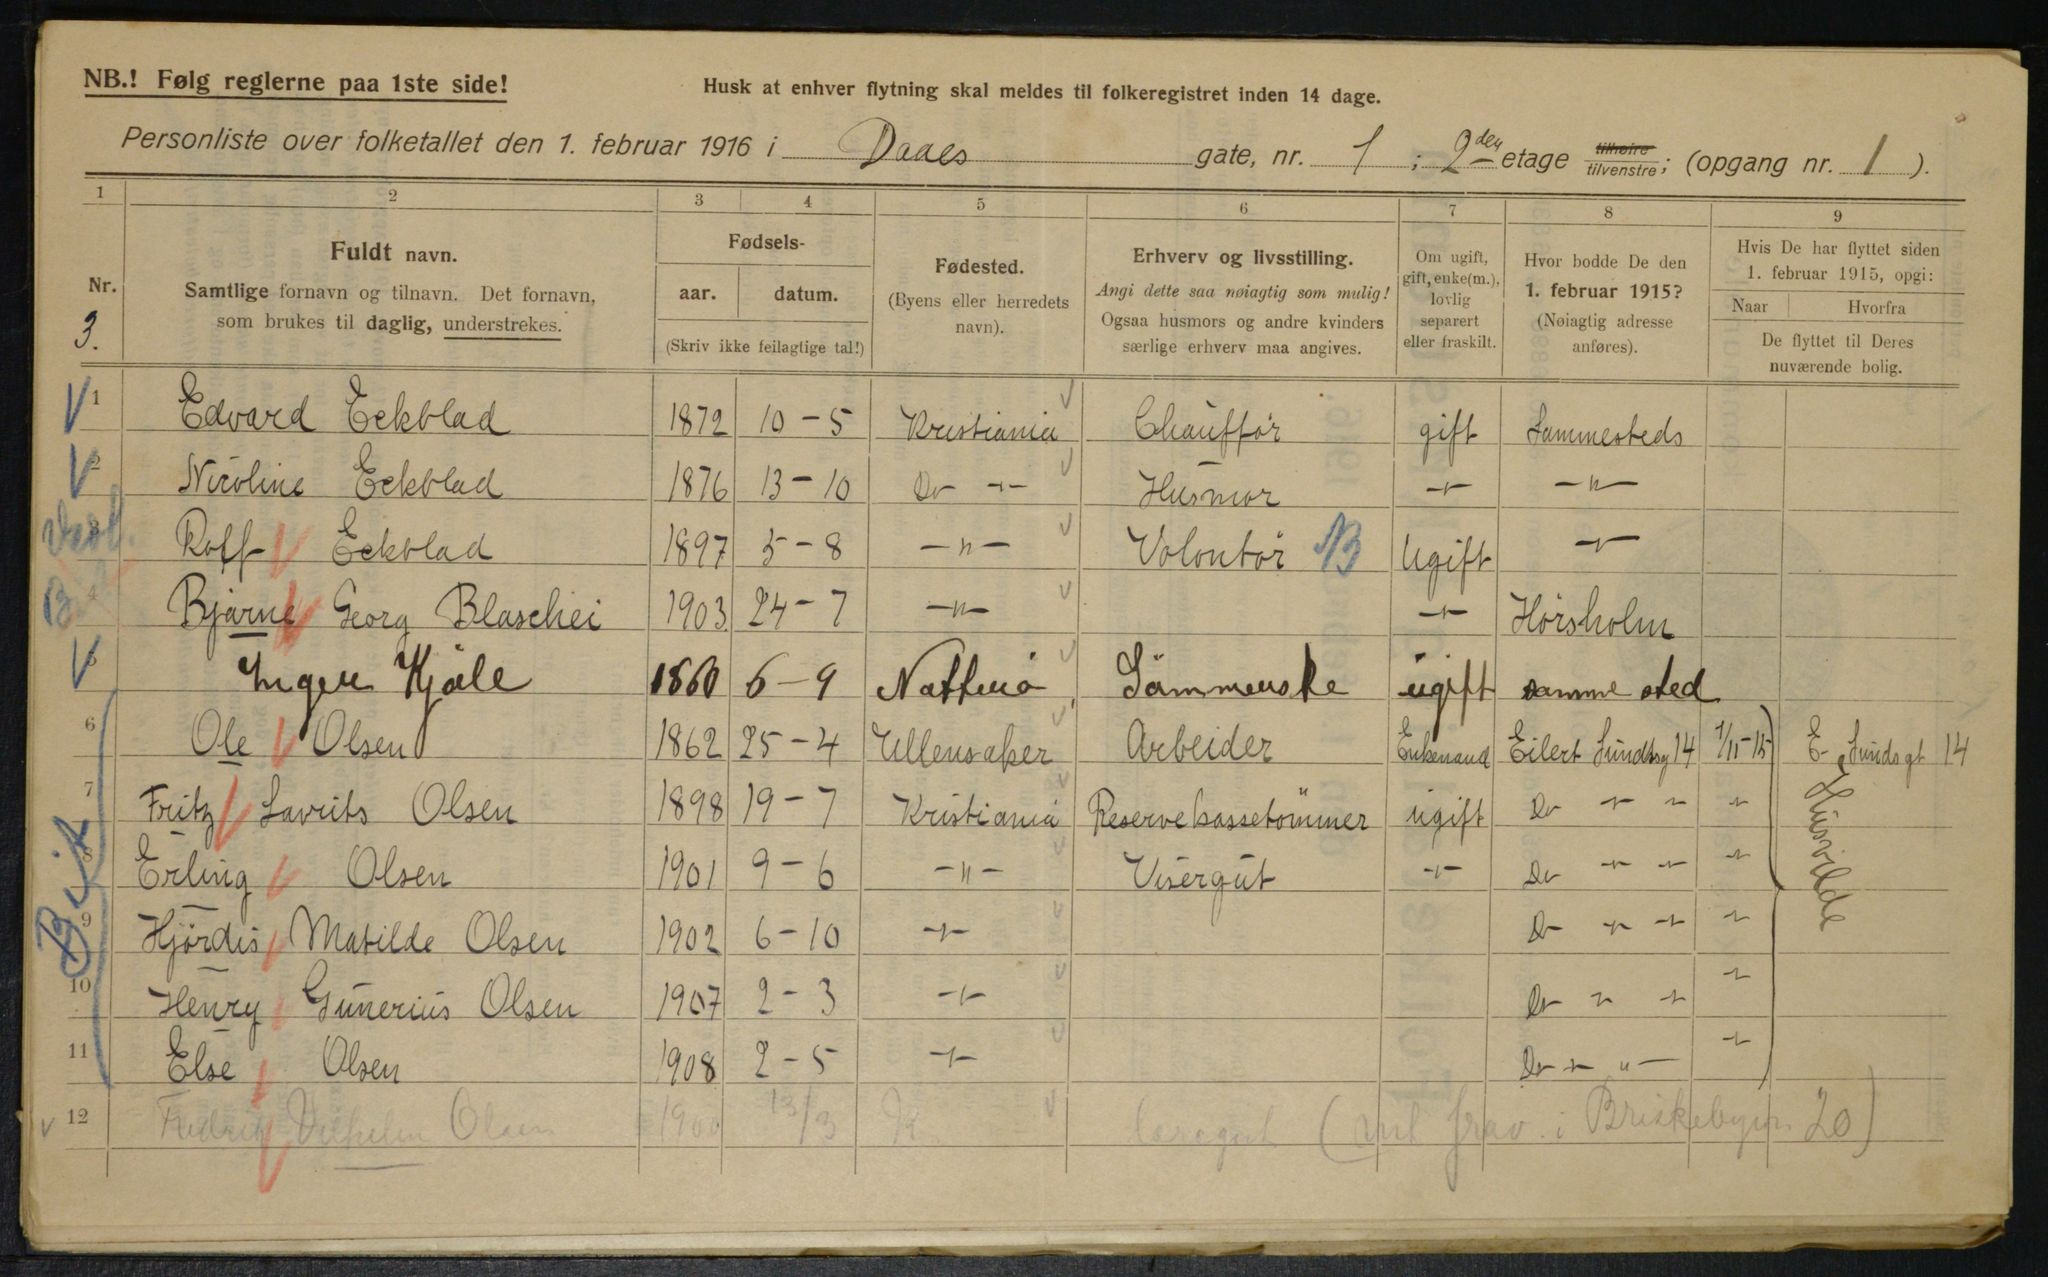 NB.! Følg reglerne paa 1ste side!
Husk at enhver flytning skal meldes til folkeregistret inden 14 dage.
Personliste over folketallet den 1. februar 1916 i Daaes gate, nr. 1; 2den etage tilhøire tilvenstre; (opgang nr. 1).
1 2 3 4 5 6 7 8 9
Nr.
3.
Fuldt navn.
Samtlige fornavn og tilnavn. Det fornavn,
som brukes til daglig, understrekes.
Fødsels-
aar. datum.
(Skriv ikke feilagtige tal!)
Fødested.
(Byens eller herredets
navn).
Erhverv og livsstilling.
Angi dette saa nøiagtig som mulig!
Ogsaa husmors og andre kvinders
særlige erhverv maa angives.
Om ugift,
gift, enke(m.),
lovlig
separert
eller fraskilt.
Hvor bodde De den
1. februar 1915?
(Nøiagtig adresse
anføres).
Hvis De har flyttet siden
1. februar 1915, opgi:
Naar Hvorfra
De flyttet til Deres
nuværende bolig.
1 Edvard Eckblad 1872 10-5 Kristiania Chauffør gift Sammesteds
2 Nicoline Eckblad 1876 13-10 Do -"- Husmor -"- -"-
3 Rolf Eckblad 1897 5-8 -"- Volontør B Ugift -"-
4 Bjarne Georg Blaschei 1903 24-7 -"- -"- Hørsholm
5 Inger Kjøle 1860 6-9 Sømmerske ugift samme sted
6 Ole Olsen 1862 25-4 Ullensaker Arbeider Enkemand Eilert Sundtsg 14 1/11-15 E. Sunds gt 14
7 Fritz Lavrits Olsen 1898 19-7 Kristiania Reservekassetømmer ugift Do " " "
8 Erling Olsen 1901 9-6 -"- Visergut -"- Do " " "
9 Hjørdis Matilde Olsen 1902 6-10 -"- Do " " "
10 Henry Gunerius Olsen 1907 2-3 -"- Do " " "
11 Else Olsen 1908 2-5 -"- Do " " "
12 Fredrik Vilhelm Olsen 1900 13/3 K. i Briskebyvn 20)
Husvilde